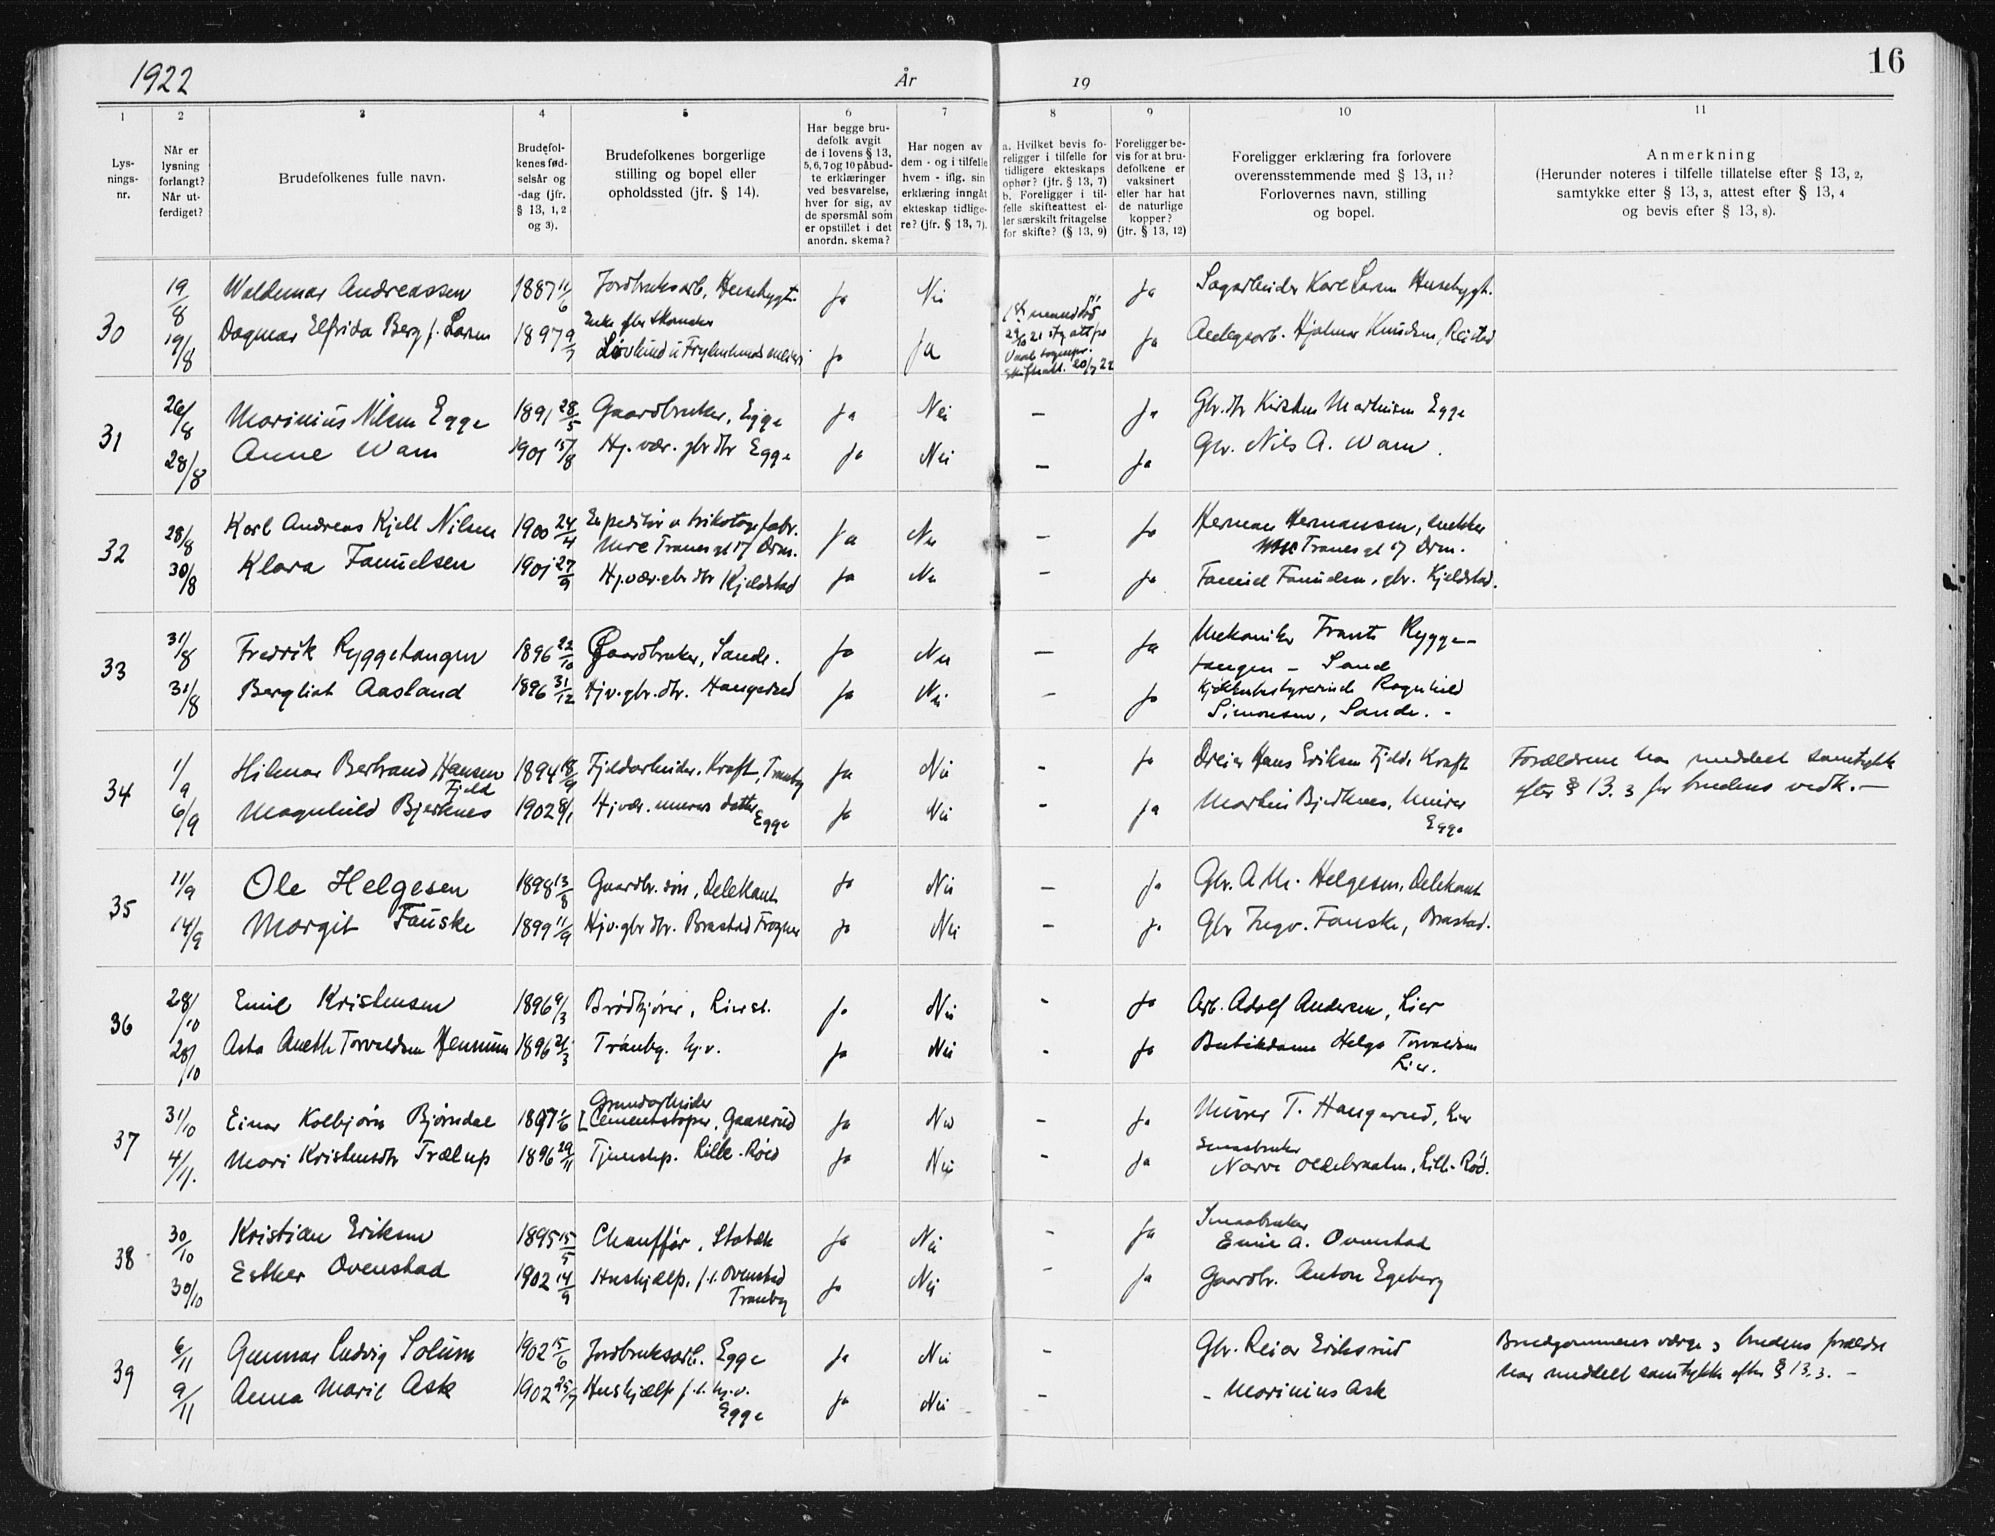 1922 År 19 16
1 2 3 4 5 6 7 8 9 10 11
Lys-
nings-
nr.
Når er
lysning
forlangt?
Når ut-
ferdiget?
Brudefolkenes fulle navn.
Brudefol-
kenes fød-
selsår og
-dag (jfr.
§ 13, 1, 2
og 3).
Brudefolkenes borgerlige
stilling og bopel eller
opholdssted (jfr. § 14).
Har begge bru-
defolk avgit
de i lovens § 13,
5, 6, 7 og 10 påbud-
te erklæringer
ved besvarelse,
hver for sig, av
de spørsmål som
er opstillet i det
anordn. skema?
Har nogen av
dem - og i tilfelle
hvem - iflg. sin
erklæring inngåt
ekteskap tidlige-
re? (jfr. § 13, 7).
a. Hvilket bevis fo-
religger i tilfelle for
tidligere ekteskaps
ophør? (jfr. § 13, 7)
b. Foreligger i til-
felle skifteattest el-
ler særskilt fritagelse
for skifte? (§ 13, 9)
Foreligger be-
vis for at bru-
defolkene er
vaksinert
eller har hat
de naturlige
kopper?
(jfr. § 13, 12)
Foreligger erklæring fra forlovere
overensstemmende med § 13, 11?
Forlovernes navn, stilling
og bopel.
Anmerkning
(Herunder noteres i tilfelle tillatelse efter § 13, 2,
samtykke efter § 13, 3, attest efter § 13, 4
og bevis efter § 13, 8).
30
19/8 Waldemar Andreassen 1887 11/6 Jordbruksarb, Ja Nei Ja Sagarbeider Karl Larsen
19/8 Dagmar Elfrida Berg f. Larsen 1897 9/7 Enke efter Ja Ja Ja Hjalmar Knudsen,
31
26/8 Marinius Nilsen Egge 1891 28/5 Gaardbruker, Egge Ja Nei — Ja Gbr. dtr Kirsten Mathisen Egge
28/8 Anne Wam 1901 15/8 Hj. vær. gbr dtr Egge Ja Nei — Ja Gbr. Nils A. Wam.
32
28/8 Karl Andreas Kjell Nilsen 1900 24/4 Expeditør v. trikotagefabr. Ja Nei — Ja Herman Hermansen, snekker
Tranes gt 17 Drm. Tranes gt 17 Drm.
30/8 Klara Fanuelsen 1901 27/9 Hj. vær. gbr dtr Kjeldstad Ja Nei — Ja Fanuel Fanuelsen, gbr. Kjeldstad.
33
31/8 Fredrik Ryggetangen 1896 22/10 Gaardbruker, Sande. Ja Nei — Ja Mekaniker Frants Rygge-
tangen - Sande
31/8 Bergliot Aasland 1896 31/12 Hjv. gbr. dtr. Haugerud Ja Nei — Ja Kjøkkenbestyrerinde Ragnhild
Simonsen, Sande. -
34
1/9 Hilmar Bertrand Hansen 1894 18/9 Fjeldarbeider. Kraft, Tranby Ja Nei - Ja Dreier Hans Eriksen Fjeld, Kraft Forældrene har meddelt samtykke
Fjeld efter § 13. 3 for brudens vedk. —
6/9 Magnhild Bjerknes 1902 8/1 Hj vær. murers datter Ja Nei - Ja Martin Bjerknes, Murer
Egge Egge
35
11/9 Ole Helgesen 1898 13/8 Gaardbr. søn, Delekant Ja Nei — Ja Gbr. A M. Helgesen, Delekant
14/9 Margit Fauske 1899 11/9 Hjv. gbr dtr. Brastad Frogner Ja Nei — Ja Gbr Ingv. Fauske, Brastad.
36
28/10 Emil Kristensen 1896 9/3 Brødkjører, Lier st. Ja Nei - Ja Arb. Adolf Andersen, Lier
28/10 Asta Aneth Torvaldsen Hennum 1896 21/3 Tranby. hj.v. Ja Nei - Ja Butikdame Helga Torvaldsen
Lier.
37
Grundarbeider
31/10 Einar Kolbjørn Bjørndal 1897 1/6 [Cementstøper, Gaaserud Ja Nei - Ja Murer T. Haugerud, Lier
4/11. Mari Kristensdtr Trælup 1896 29/11 Tjenestep. Lille-Røed Ja Nei - Ja Smaabruker
Narve Oldebraaten, Lill-Rød.
38
30/10 Kristian Eriksen 1895 15/5 Chauffør, Stabæk Ja Nei - Ja Smaabruker
Emil A. Ovenstad
30/10 Esther Ovenstad 1902 14/9 Hushjælp. f.t. Ovenstad Ja Nei - Ja Gaardbr. Anton Egeberg
Tranby
39
6/11 Gunnar Ludvig Solum 1902 15/6 Jordbruksarb. Egge Ja Nei - Gbr. Reier Eriksrud Brudgommens værge og brudens forældre
har meddelt samtykke efter § 13.3. -
9/11 Anna Marie Ask 1902 25/7 Hushjælp f.t. hj.v. Ja Nei - - Marinius Ask
Egge